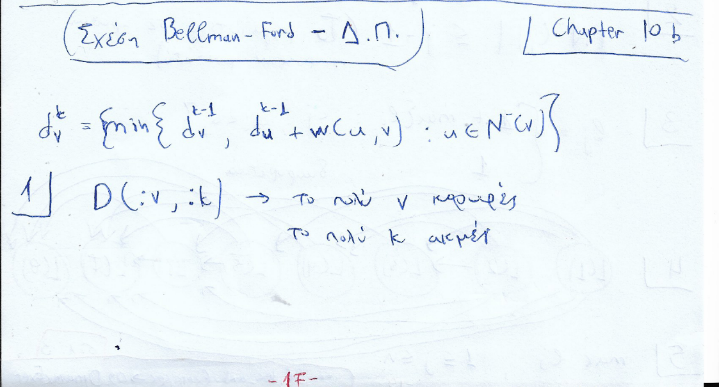 Σχέση Bellman-Ford - Δ.Π.
Chapter 10 b
d_v^k = {min{ d_v^{k-1}, d_u^{k-1} + w(u,v) : u ∈ N^-(v)}
1] D(:v, :k) → το πολύ v κορυφές
το πολύ k ακμές
-17-